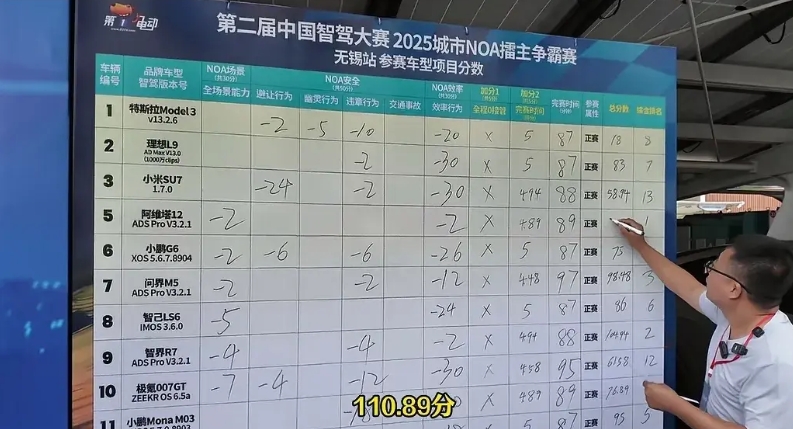 第 电动
第二届中国智驾大赛 2025城市NOA擂主争霸赛
无锡站 参赛车型项目分数
车辆编号 品牌车型 智驾版本号 NOA场景 全场景能力 NOA安全 避让行为 幽灵行为 违章行为 交通事故 NOA效率 效率行为 加分1 全程0接管 加分2 完赛时间 完赛时间 参赛属性 总分数
1 特斯拉Model 3 v13.2.6 -2 -5 -10 -20 × 5 87 正赛 8
2 理想L9 AD Max V13.0 (1000万clips) -2 -30 × 5 87 正赛 83 7
3 小米SU7 1.7.0 -24 -2 -30 × 4.94 88 正赛 58.94 13
5 阿维塔12 ADS Pro V3.2.1 -2 -2 × 4.89 89 正赛 1
6 小鹏G6 XOS 5.6.7.8904 -2 -6 -6 -26 × 5 87 正赛 75
7 问界M5 ADS Pro V3.2.1 -2 -2 -12 × 4.48 97 正赛 98.48 3
8 智己LS6 IMOS 3.6.0 -5 -24 × 5 87 正赛 86 6
9 智界R7 ADS Pro V3.2.1 -4 -4 -2 × 4.94 88 正赛 104.94 2
10 极氪007GT ZEEKR OS 6.5a -7 -4 -12 -30 × 4.58 95 正赛 61.58 12
11 小鹏Mona M03 × 4.89 89 正赛 76.89
5 87 正赛 95 5
110.89分